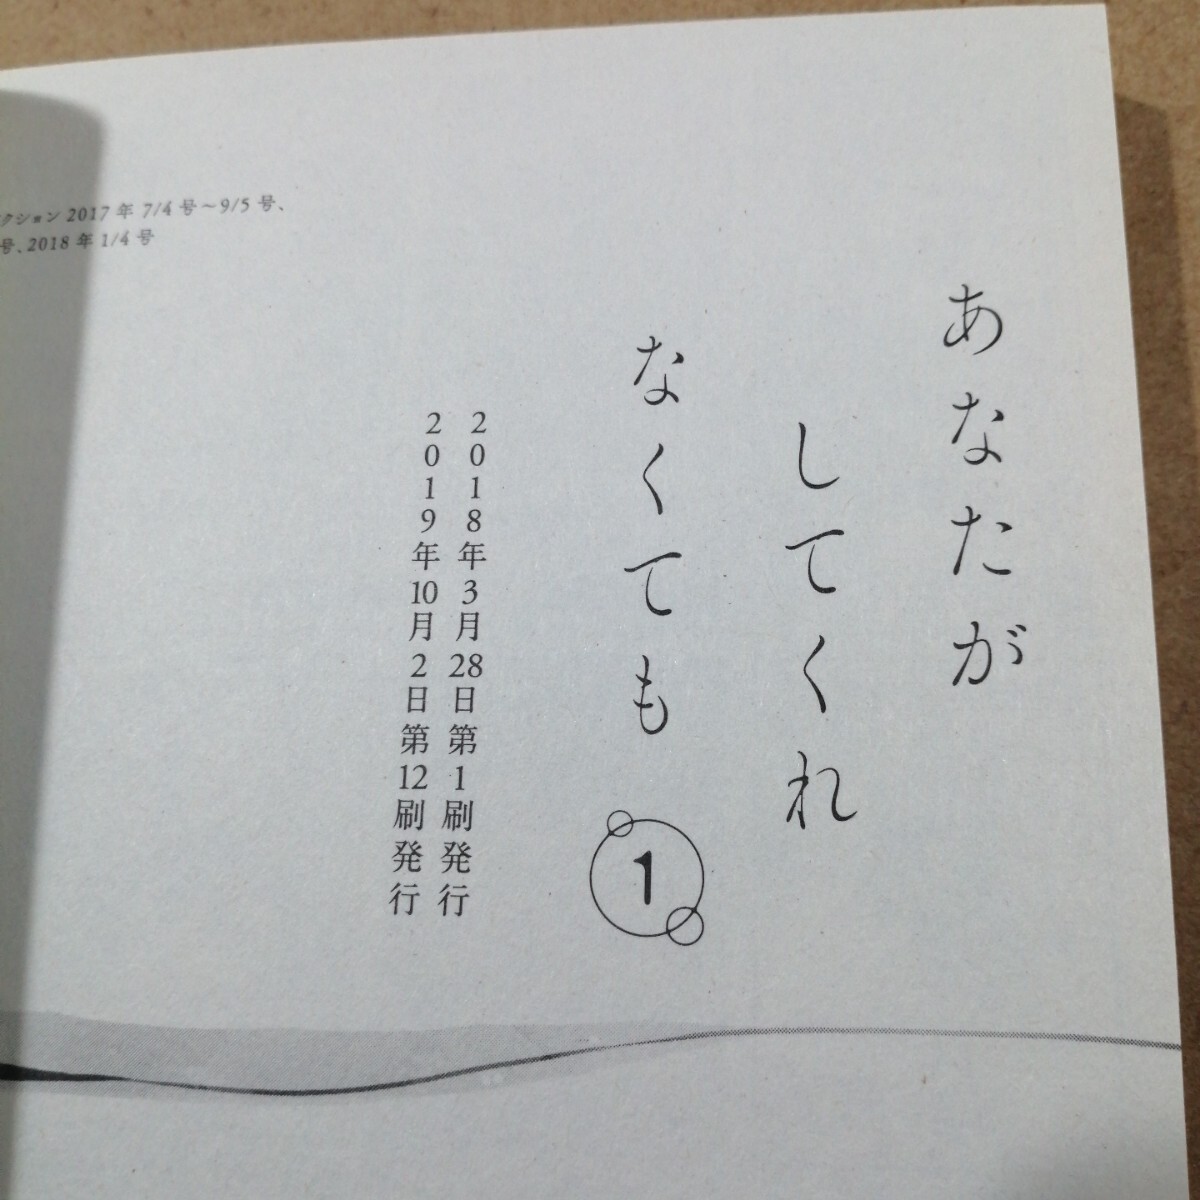 あなたが
してくれ
なくても
1
2018年3月28日第1刷発行
2019年10月2日第12刷発行
クション 2017年 7/4号～9/5号、
号、2018年 1/4号